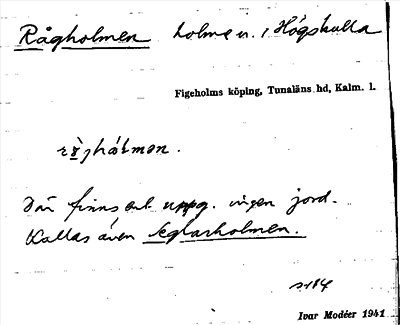 Rågholmen holme u. Högskulla
Figeholms köping, Tunaläns hd, Kalm. l.
Där finns enl. uppg. ingen jord.
Kallas även Seglarholmen.
s. 184
Ivar Modéer 1941